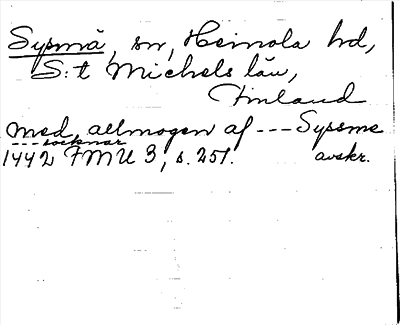 Sysmä, sn, Heinola hd,
S:t Michels län,
Finland
med, allmogen af --- Syssme
--- socknar
1442 FMU 3, s. 251. avskr.